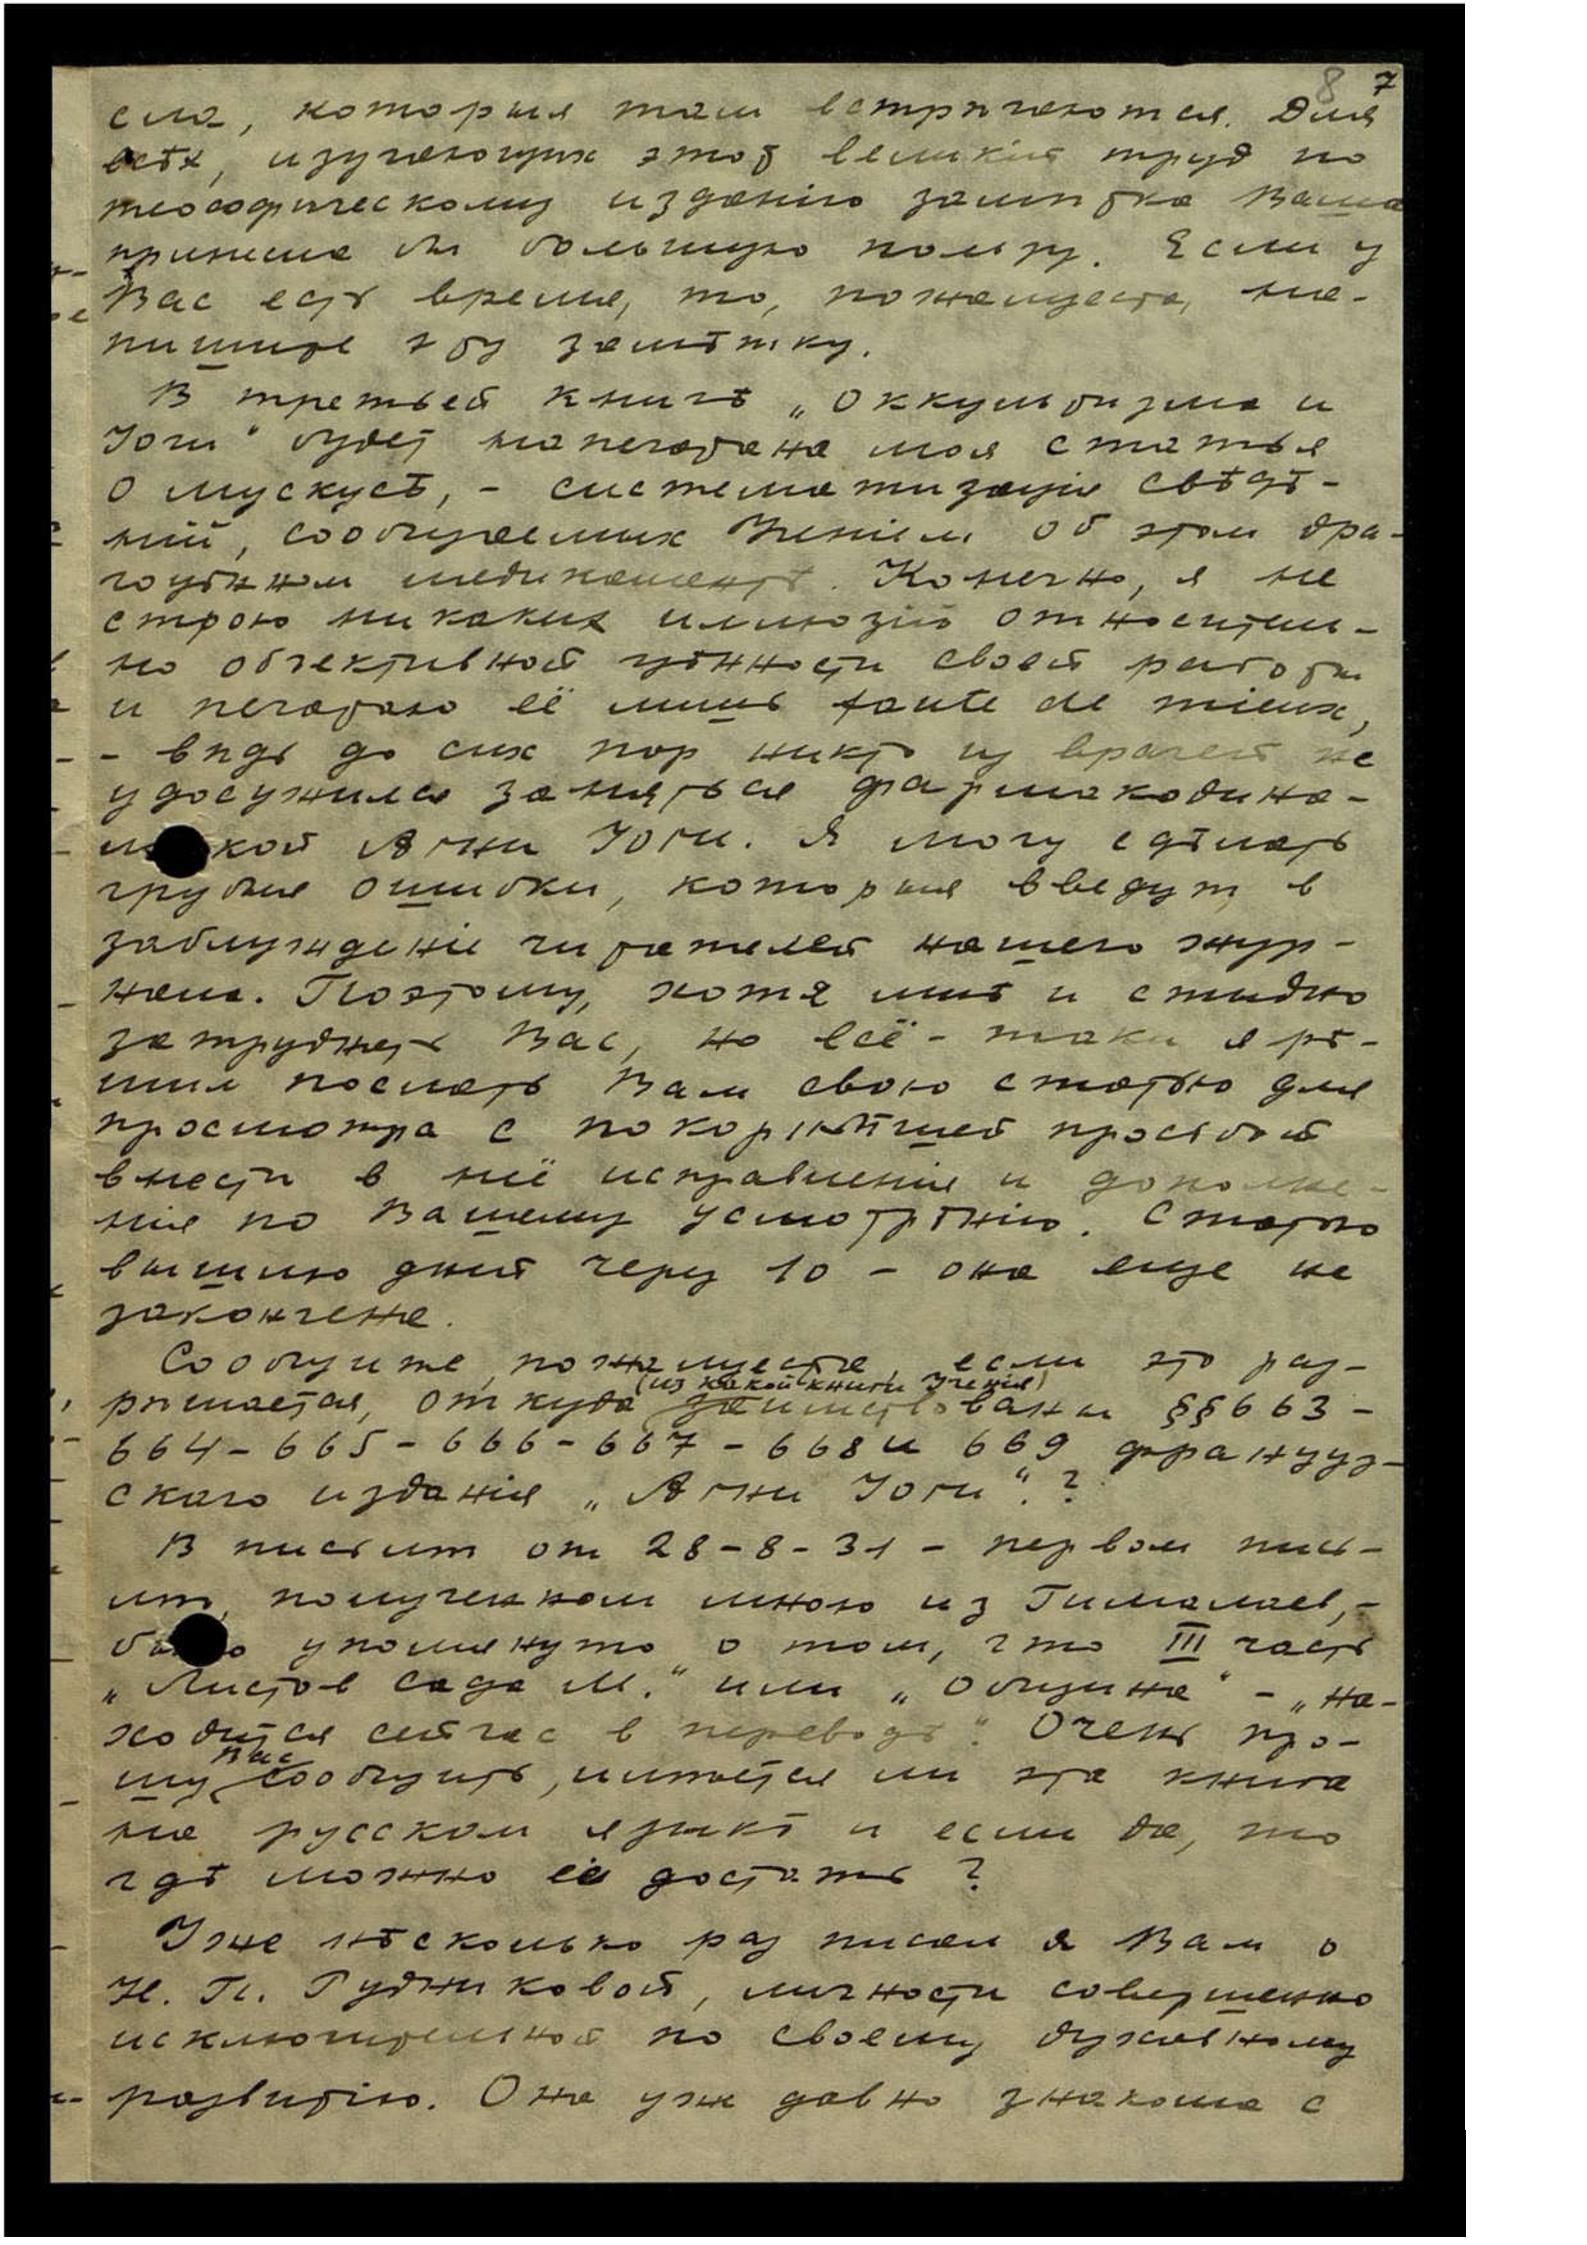 8 7
сла, которыя там встрѣчаются. Для
всѣх, изучающих этот великій труд по
теософическому изданію замѣтка Ваша
принесла бы большую пользу. Если у
Вас есть время, то, пожалуйста, на-
пишите эту замѣтку.
В третьей книгѣ „Оккультизма и
Іоги" будет напечатана моя статья
о мускусѣ, - систематизація свѣдѣ-
ній, сообщаемых Ученіем об этом дра-
гоцѣнном медикаментѣ. Конечно, я не
строю никаких иллюзій относитель-
но объективной цѣнности своей работы
и печатаю её лишь faute de mieux,
- вѣдь до сих пор никто из врачей не
удосужился заняться фармакодина-
микой Агни Іоги. Я могу сдѣлать
грубыя ошибки, которыя введут в
заблужденіе читателей нашего жур-
нала. Поэтому, хотя мнѣ и стыдно
затруднять Вас, но всё-таки я рѣ-
шил послать Вам свою статью для
просмотра с покорнѣйшей просьбой
внести в неё исправленія и дополне-
нія по Вашему усмотрѣнію. Статью
вышлю дней через 10 - она еще не
закончена.
Сообщите, пожалуйста, если это раз-
(из какой книги Ученія)
рѣшается, откуда заимствованы §§ 663-
664-665-666-667-668 и 669 француз-
скаго изданія „Агни Іоги".?
В письмѣ от 28-8-31 - первом пись-
мѣ, полученном мною из Гималаев,-
было упомянуто о том, что III часть
„Листов Сада М." или „Община" - „на-
ходится сейчас в переводѣ". Очень про-
Вас
шу сообщить, имѣется ли эта книга
на русском языкѣ и если да, то
гдѣ можно её достать?
Уже нѣсколько раз писал я Вам о
Н. П. Рудниковой, личности совершенно
исключительной по своему духовному
развитію. Она уж давно знакома с